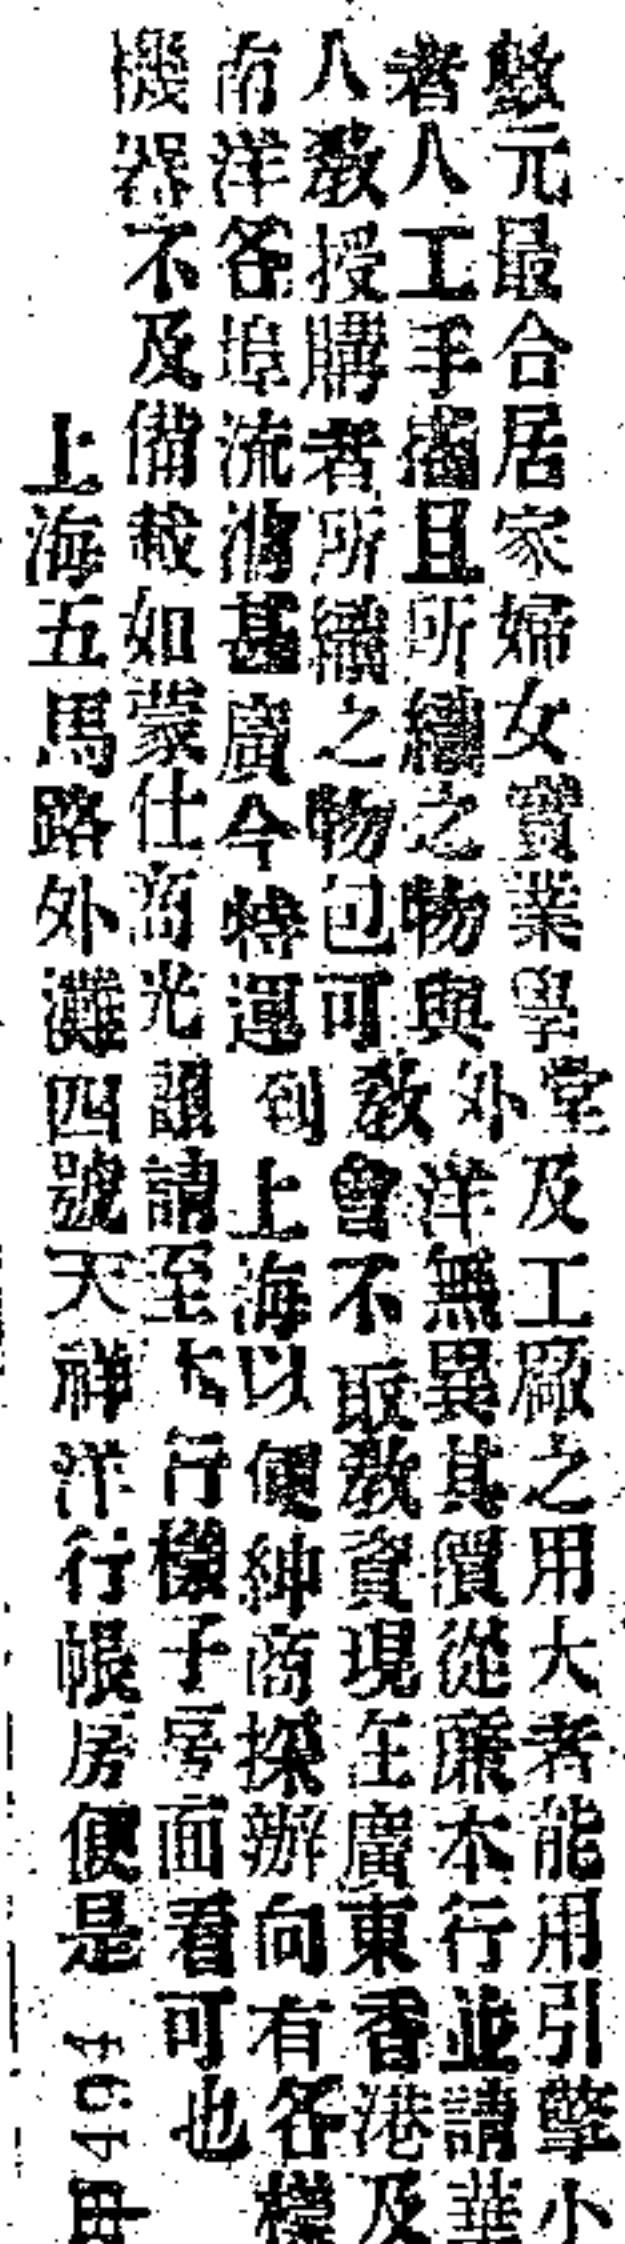 數元最合居家婦女實業學堂及工廠之用大者能用引擎小
者人工手搖且所織之物與外洋無異其價從廉本行並請華
人教授購者所織之物包可教會不取教資現在廣東香港及
南洋各埠流消甚廣今特運到上海以便紳商採辦向有各樣
機器不及備載如蒙仕商光顧請至本行樣子房面看可也
上海五馬路外灘四號天祥洋行帳房便是
甲494